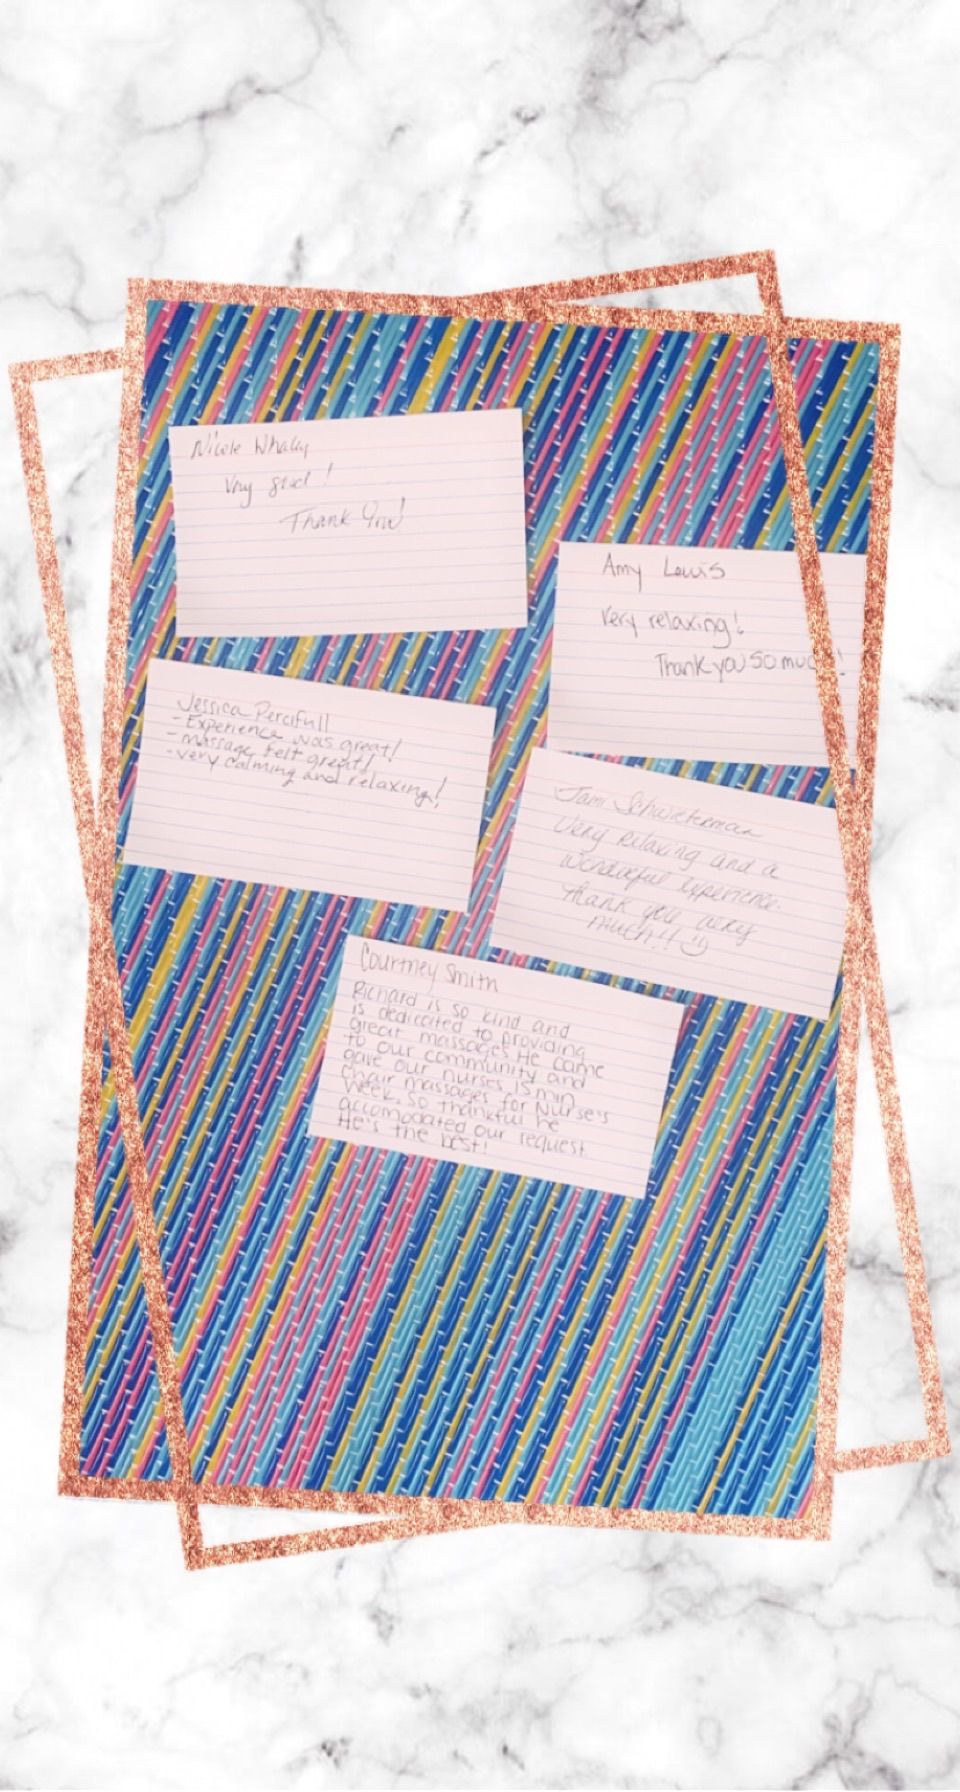 Nicole Whaley
Very good!
Thank You!
Amy Lewis
Very relaxing!
Thank you so much!
Jessica Percifull
- Experience was great!
- massage felt great!
- very calming and relaxing!
Schwieterman
Very Relaxing and a
Wonderful experience.
Thank you very
much!!
Courtney Smith
Richard is so kind and
is dedicated to providing
great massages. He came
to our community and
gave our nurses 15 min
chair massages for Nurse's
Week. So thankful he
accomodated our request.
He's the best!